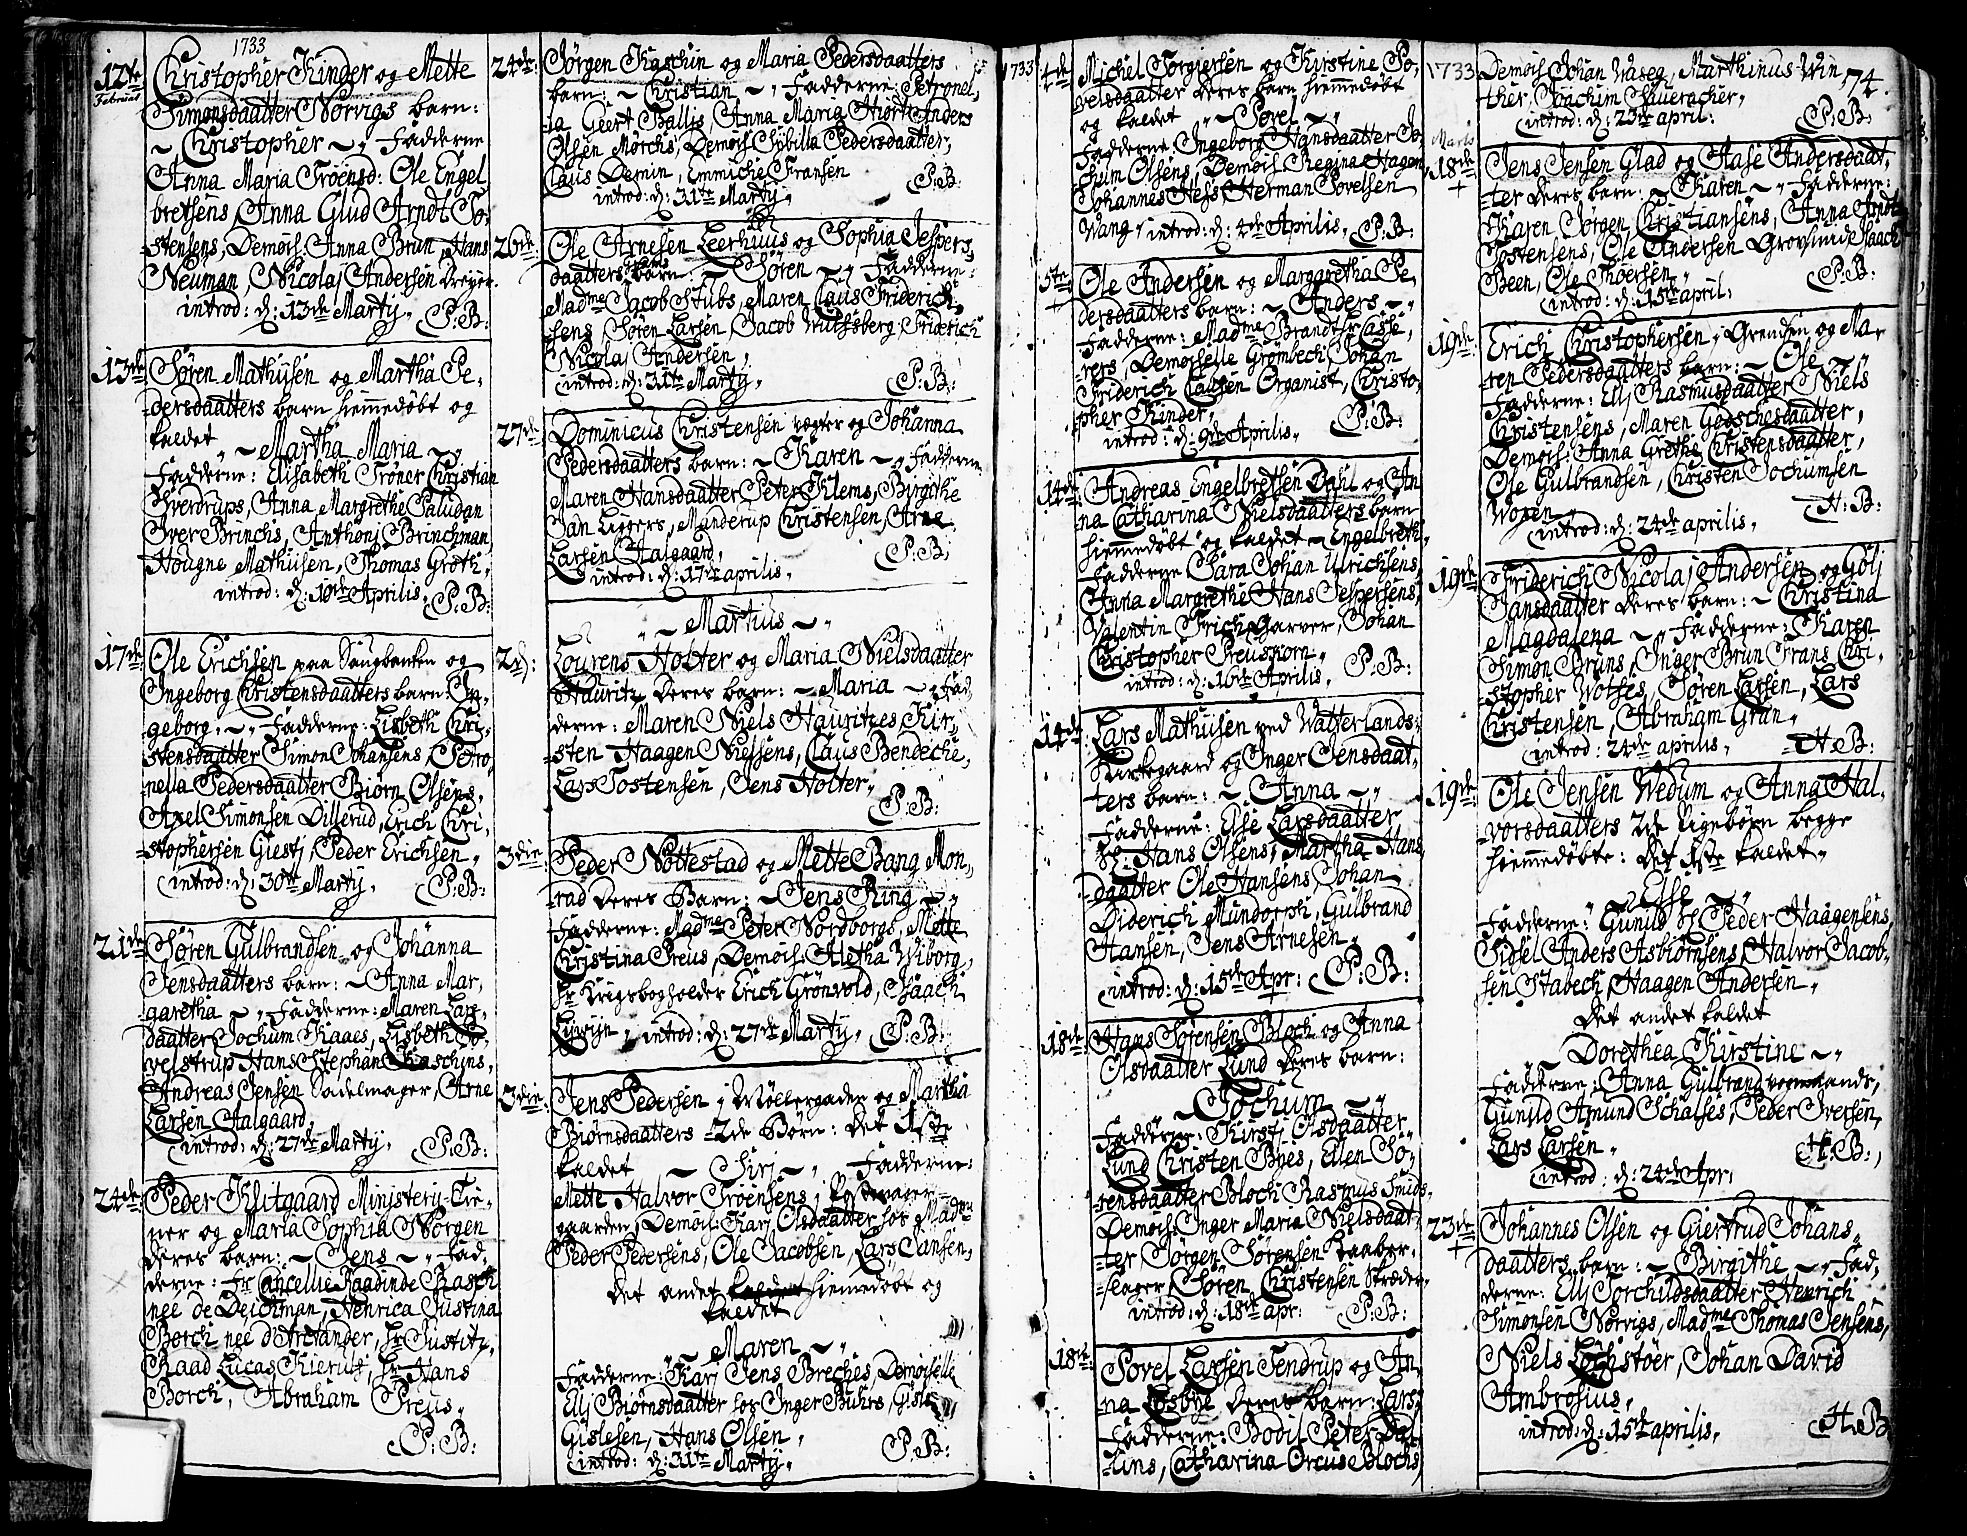 1733
12te Februar
Christopher Kinder og Mette
Simonsdaatter Nørvigs barn:
~ Christopher ~ Fadderne
Anna Maria Trøensd: Ole Engel
bretsens, Anna Glud Arndt To-
stensens, Demois: Anna Brun, Hans
Neuman, Nicolaj Andersen
introd: d: 13de Martij. P: B:
13de
Søren Mathisen og Martha Pe-
dersdaatters barn hiemmedøbt og
kaldet ~ Martha Maria ~
Fadderne: Elisabeth Trøner Christian
Sverdrups, Anna Margrethe Paludan
Iver Brinchs, Anthonj Brinchman
Hougne Mathisen, Thomas Groth,
introd: d: 10de Aprilis. P: B:
17de
Ole Erichsen paa Saugbanken og
Ingeborg Christensdaatters barn: In-
geborg. ~ Fadderne: Lisbeth Chri-
stensdaatter Simon Johansens, Petro-
nella Pedersdaatter Biørn Olsens,
Axel Simonsen Dillerud, Erich Chri-
stophersen Giestj, Peder Erichsen,
introd: d: 30te Martij. P: B:
21de
Søren Gulbrandsen og Johanna
Jensdaatters barn: ~ Anna Mar-
garetha ~ Fadderne: Maren Lars-
daatter Jochum Kaaes, Lisbeth Po-
velstrup Hans Stephan Chaschins,
Andreas Jensen Sadelmager, Arne
Larsen Aalgaard,
introd: d: 27de Martij. P: B:
24de
Peder Klitgaard Ministerij-Tie-
ner og Maria Sophia Nørgen
deres barn: ~ Jens ~ Fad-
derne: Fr Cancellie Raadinde Rasch
nee de Deichman, Henrica Justina
Borch nee d'Arctander, Hr Justitz-
Raad Lucas Kierulf, Hr Hans
Borch, Abraham Preus.
P: B:
24de:
Jørgen Kaschin og Maria Pedersdaatters
barn: ~ Christian ~ Fadderne: Petronel-
la Geert Ballis, Anna Maria Hiort Anders
Olsen Mørchs, Demois: Sybilla Pedersdaatter,
Claus Demin, Emmiche Fransen
introd: d: 31te Martij. P: B:
26de
Ole Arnesen Leerhuus og Sophia Jespers
daatters barn: ~ Søren ~ Fadderne:
Madme Jacob Stubs, Maren Claus Friderich-
sens Søren Larsen, Jacob Wulfsberg, Friderich
Nicolaj Andersen,
introd: d: 31te Martij. P: B:
27de
Dominicus Christensen vegter og Johanna
Pedersdaatters barn: ~ Karen ~ Fadderne
Maren Hansdaatter Peter Klems, Birgithe
Jan Liggers, Manderup Christensen, Arne
Larsen Aalgaard,
introd: d: 17de aprilis. P: B:
~ Martius ~
2d:
Lourens Holter og Maria Nielsdaatter
Hauritz deres barn: ~ Maria ~ Fad
derne: Maren Niels Hauritzes, Kir-
sten Haagen Nielsens, Claus Bendeche,
Lars Tostensen, Jens Holter,
P: B:
3die:
Peder Nøttestad og Mette Bang Mon-
rad deres Barn: ~ Jens Ring ~
Fadderne: Madme Peter Nordborgs, Mette
Christina Preus, Demois: Aletha Wiborg,
Hr Krigsbogholder Erich Grønvold, Isaach
introd: d: 27de Martij. P: B:
3die:
Jens Pedersen i Møllergaden og Martha
Biørnsdaatters 2de Børn: Det 1ste
kaldet ~ Sirj ~ Fadderne:
Mette Halvor Trøensens i
gaarden, Demois: Karj Olsdaatter hos Madme
Peder Pedersens, Ole Jacobsen, Lars Jansen,
Det andet hiemmedøbt og
kaldet
~ Maren ~
Fadderne: Karj Jens Breches, Demoiselle
Elij Biørnsdaatter hos Inger Buhrs,
Gislesen, Hans Olsen,
introd: d: 31te Martij. P: B:
1733
4de
Michel Torgiersen og Kirstine Po-
velsdaatter deres barn hiemmedøbt
og kaldet ~ Povel ~
Fadderne: Ingeborg Hansdaatter Jo-
chum Olsens, Demois: Regina Hagen
Johannes Hess, Herman Povelsen
Wang, introd: d: 4de Aprilis. P: B:
5te
+
Ole Andersen og Margaretha Pe-
dersdaatters barn: ~ Anders ~
Fadderne: Madme Brandt
Demoiselle Grømbech, Johan
Friderich Clausen Organist, Christo-
pher Kinder,
introd: d: 9de Aprilis. P: B:
14de:
Andreas Engelbretsen Dahl og An
na Catharina Nielsdaatters barn
hiemmedøbt og kaldet ~ Engelbreth,
Fadderne Sara Johan Ulrichsens,
Anna Margrethe Hans Jespersens,
Valentin Frich Garver, Johan
Christopher Preushorn,
introd: d: 16de Aprilis. P: B:
14de:
Lars Mathisen ved Watterlands-
Kirkegaard og Inger Jensdaat-
ters barn: ~ Anna ~
Fadderne: Else Larsdaatter
Hans Olsens, Martha Hans
daatter Ole Hansens, Johan
Diderich Mundorph, Gulbrand
Hansen, Jens Arnesen,
introd: d: 15de Apr: P: B:
18de:
Hans Sørensen Bloch og Anna
Olsdaatter Lund deres barn:
~ Jochum ~
Fadderne: Kirstj Olsdaatter
Lund Christen Byes, Ellen Sø-
rensdaatter Bloch Rasmus Smids,
Demois: Inger Maria Nielsdaat-
ter, Jørgen Sørensen Kaaber-
slager, Søren Christensen Skræder,
introd: d: 18de apr: P: B:
18de
Povel Larsen Tendrup og An-
na Losbye deres barn: Lars.
Fadderne: Bodil Peter
Catharina Preus Blochs,
1733
74.
Demois: Johan Waseg, Marthinus Win
ther, Joachim Saueracher,
introd: d: 23de april: P: B:
Martij
18de
+
Jens Jensen Glad og Aase Andersdaat-
ter deres barn: ~ Karen ~ Fadderne:
Karen Jørgen Christiansens, Anna Arndt
Tostensens, Ole Andersen Grovsmid, Isaach
Been, Ole Thoersen,
introd: d: 15de april: P: B:
19de:
Erich Christophersen i Grendsen og Ma-
ren Pedersdaatters barn: ~ Ole ~
Fadderne: Elij Rasmusdaatter Niels
Christensens, Maren Gedschesdaatter,
Demois: Anna Grethe Christensdaatter,
Ole Gulbrandsen, Christen Jochumsen
Woxen,
introd: d: 24de aprilis. H: B:
19de
Friderich Nicolaj Andersen og Gølj
Jansdaatter deres barn: ~ Christina
Magdalena ~ Fadderne: Karen
Simon Bruns, Inger Brun Frans Chri-
stopher Wotses, Søren Larsen, Lars
Christensen, Abraham Gran,
introd: 24de aprilis. H: B:
19de:
Ole Jensen Wedum og Anna Hal-
vorsdaatters 2de Tigebørn begge
hiemmedøbte: Det 1ste kaldet
~ Else ~
Fadderne: Gunild Peder Haagensens,
Sidsel Anders Asbiørnsens, Halvor Jacob-
sen Stabech, Haagen Andersen,
Det andet kaldet
~ Dorethea Kirstine ~
Fadderne: Anna Gulbrand vognmands,
Gunild Amund Schalses, Peder Iversen,
Lars Larsen
introd: d: 24de Apr: H: B:
23de
+
Johannes Olsen og Giertrud Johans-
daatters barn: ~ Birgithe ~ Fad-
derne: Elij Torchildsdaatter Henrich
Simonsen Nørvigs, Madme Thomas Jensens,
Niels Løchstøer, Johan David
Ambrosius,
introd: d: 15de aprilis. H: B